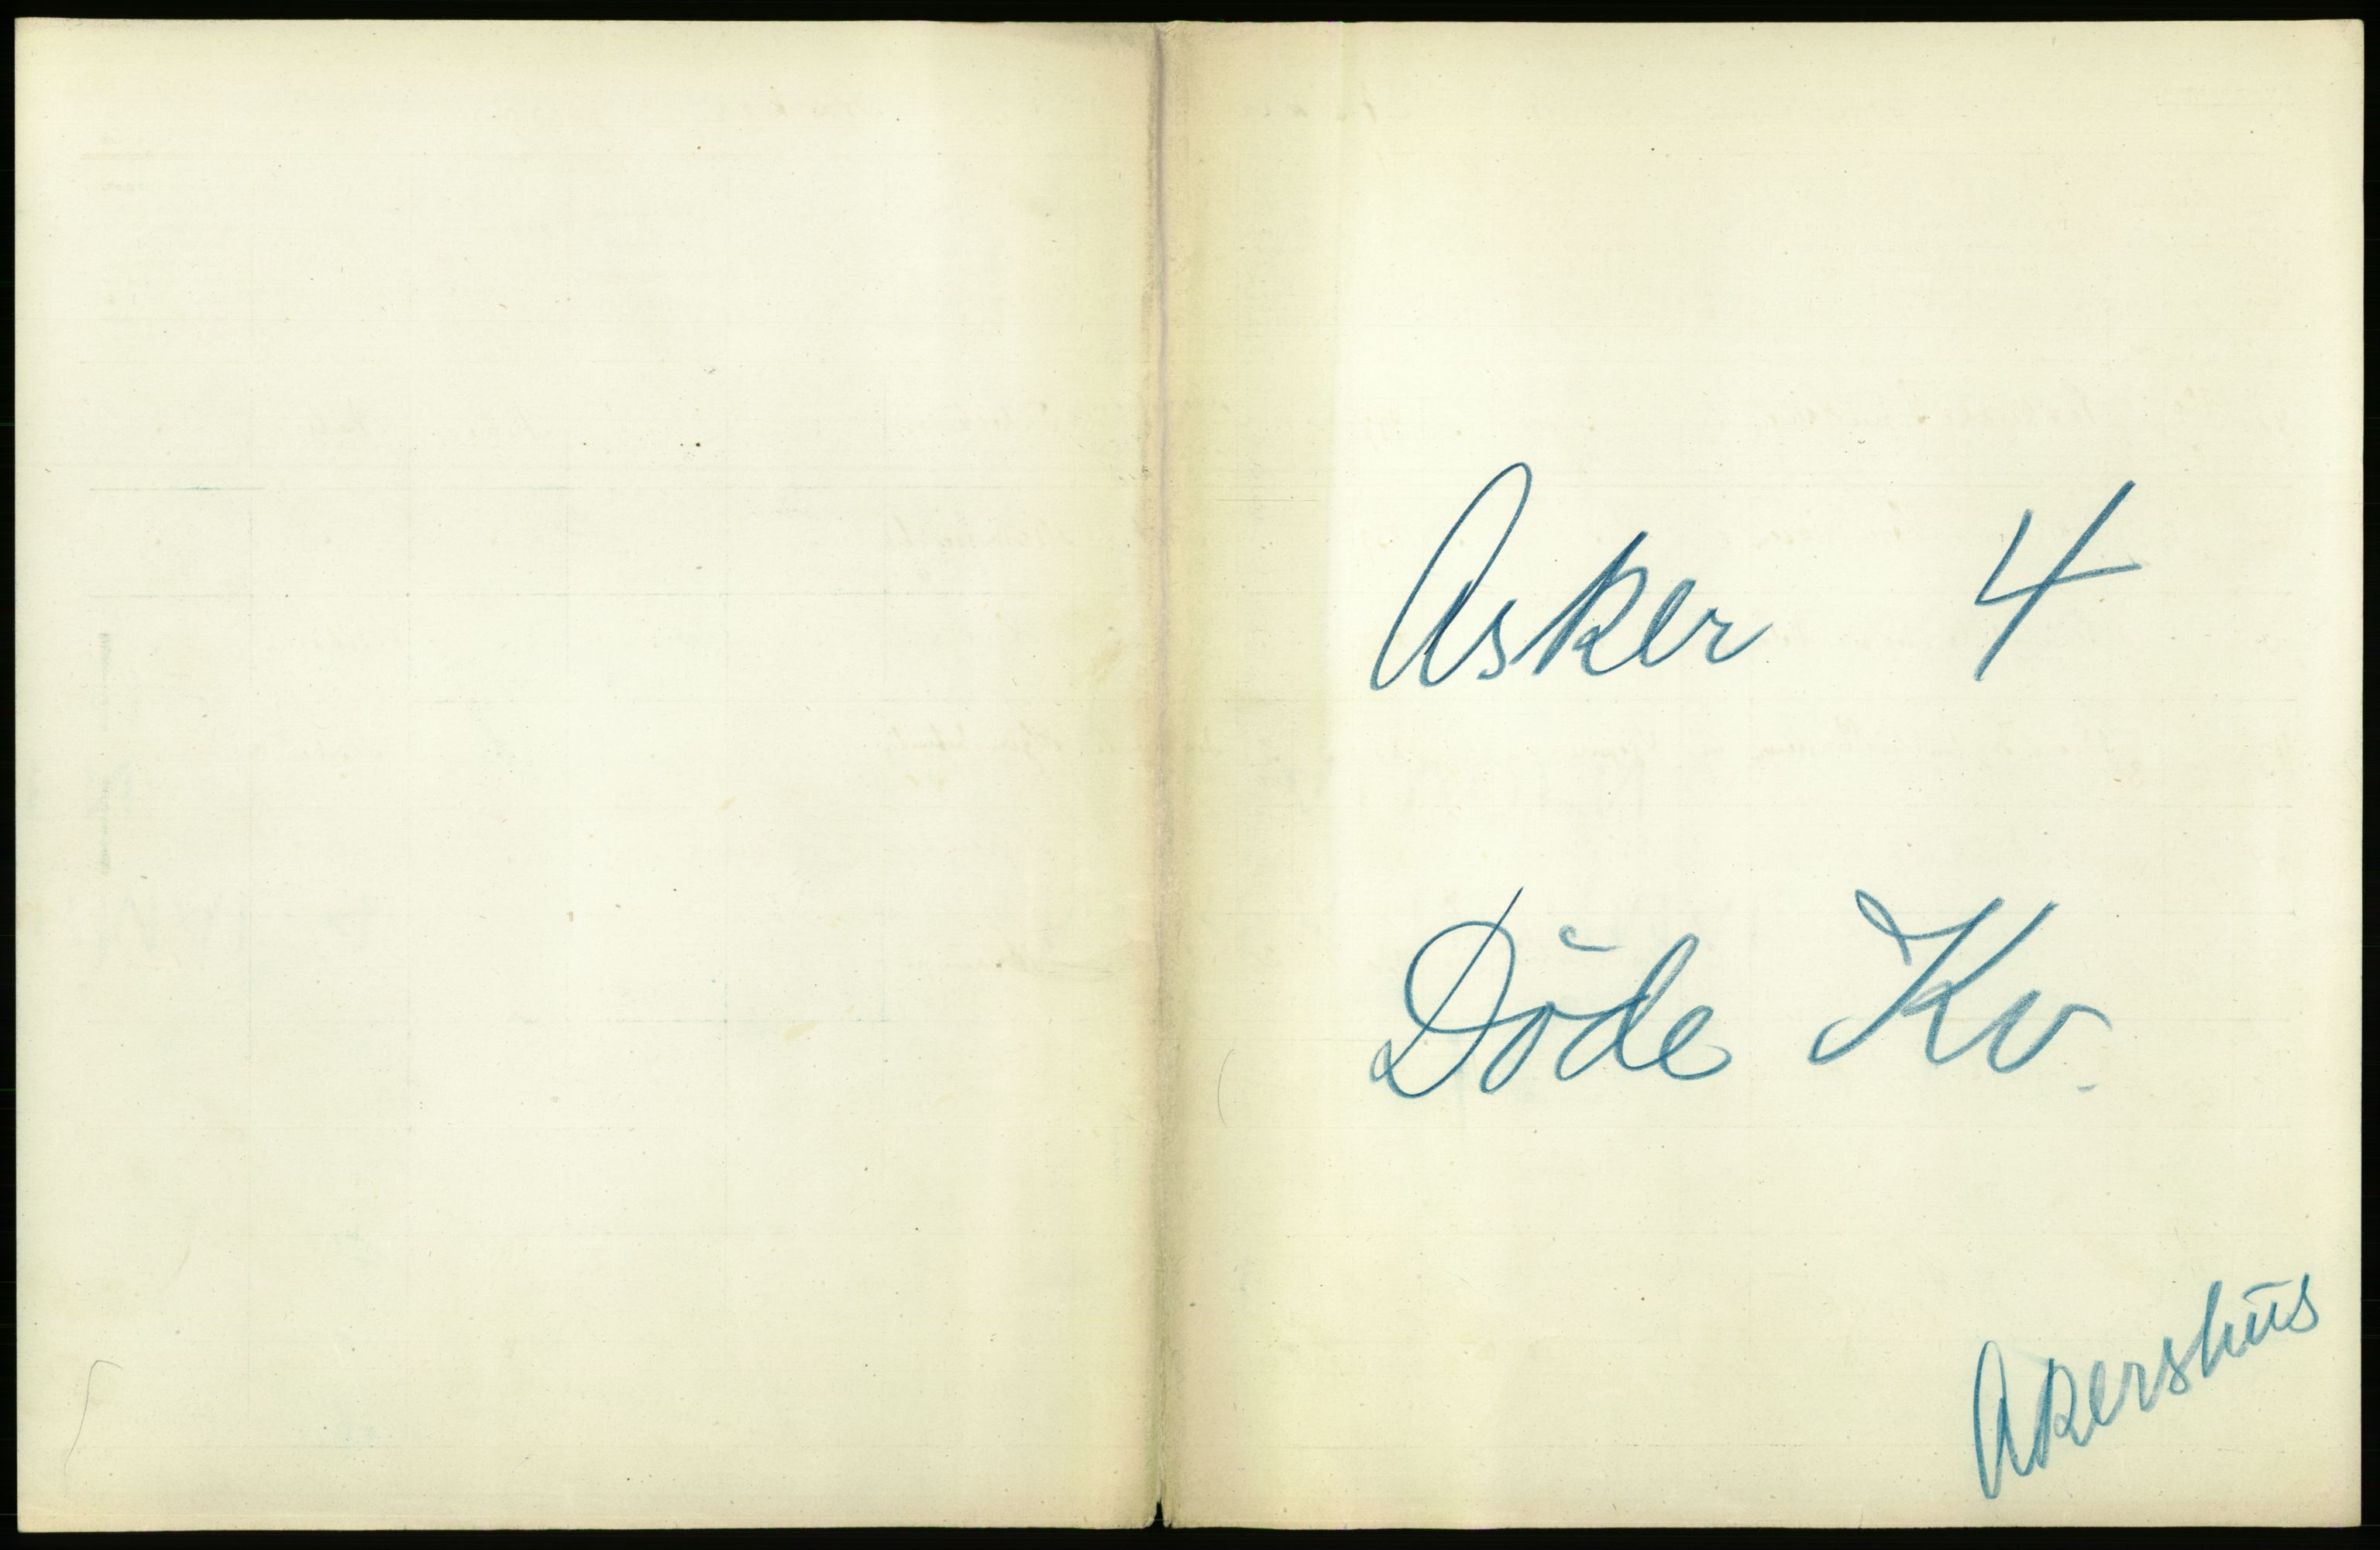 Asker 4
Döde Kv.
Akershus